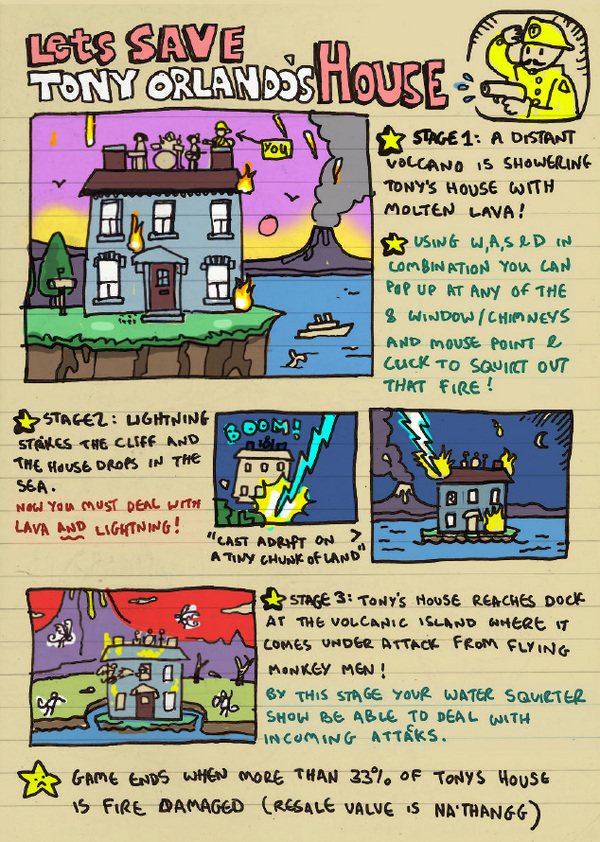 LETS SAVE
TONY ORLANDO'S HOUSE
YOU
STAGE 1: A DISTANT
VOLCANO IS SHOWERING
TONY'S HOUSE WITH
MOLTEN LAVA!
USING W,A,S & D IN
COMBINATION YOU CAN
POP UP AT ANY OF THE
8 WINDOW/CHIMNEYS
AND MOUSE POINT &
CLICK TO SQUIRT OUT
THAT FIRE!
STAGE 2: LIGHTNING
STRIKES THE CLIFF AND
THE HOUSE DROPS IN THE
SEA.
NOW YOU MUST DEAL WITH
LAVA AND LIGHTNING!
BOOM!
"CAST ADRIFT ON
A TINY CHUNK OF LAND"
STAGE 3: TONY'S HOUSE REACHES DOCK
AT THE VOLCANIC ISLAND WHERE IT
COMES UNDER ATTACK FROM FLYING
MONKEY MEN!
BY THIS STAGE YOUR WATER SQUIRTER
SHOW BE ABLE TO DEAL WITH
INCOMING ATTAKS.
GAME ENDS WHEN MORE THAN 33% OF TONYS HOUSE
IS FIRE DAMAGED (RESALE VALVE IS NA'THANGG)